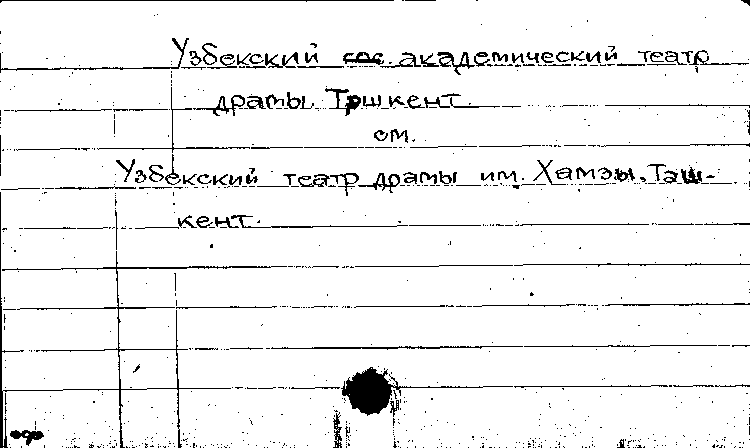 Узбекский гос. академический театр
драмы. Ташкент.
см.
Узбекский театр драмы им. Хамзы. Таш-
кент.